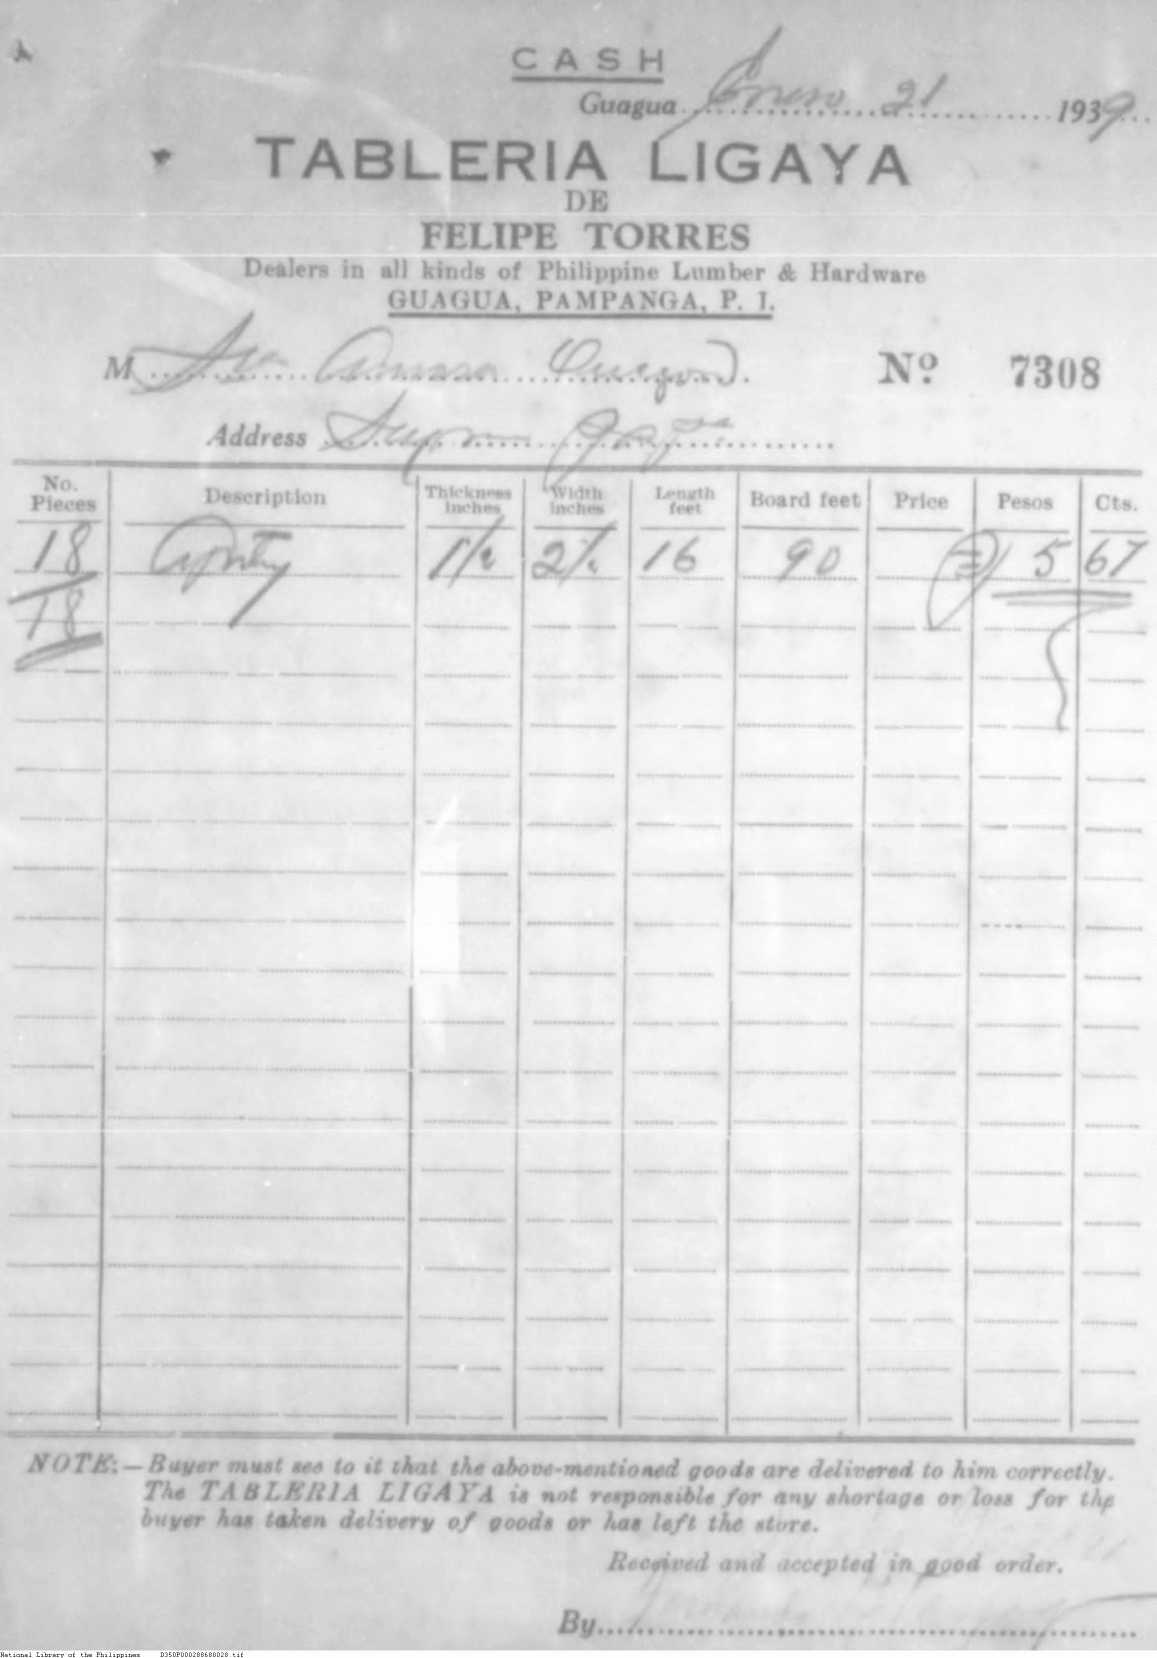 CASH
Guagua Enero 21 1939
TABLERIA LIGAYA
DE
FELIPE TORRES
Dealers in all kinds of Philippine Lumber & Hardware
GUAGUA, PAMPANGA, P. I.
M Sra Aurora Quezon. Nº 7308
Address
No. Pieces Description Thickness inches Width inches Length feet Board feet Price Pesos Cts.
18 Apitong 1½ 2½ 16 90 5 67
18
NOTE:—Buyer must see to it that the above-mentioned goods are delivered to him correctly.
The TABLERIA LIGAYA is not responsible for any shortage or loss for the
buyer has taken delivery of goods or has left the store.
Received and accepted in good order.
By
National Library of the Philippines D350P000288680028.tif